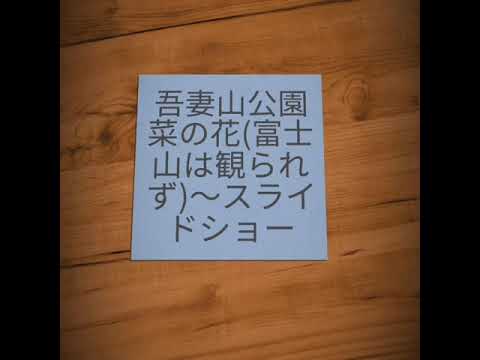 吾妻山公園
菜の花(富士
山は観られ
ず)〜スライ
ドショー